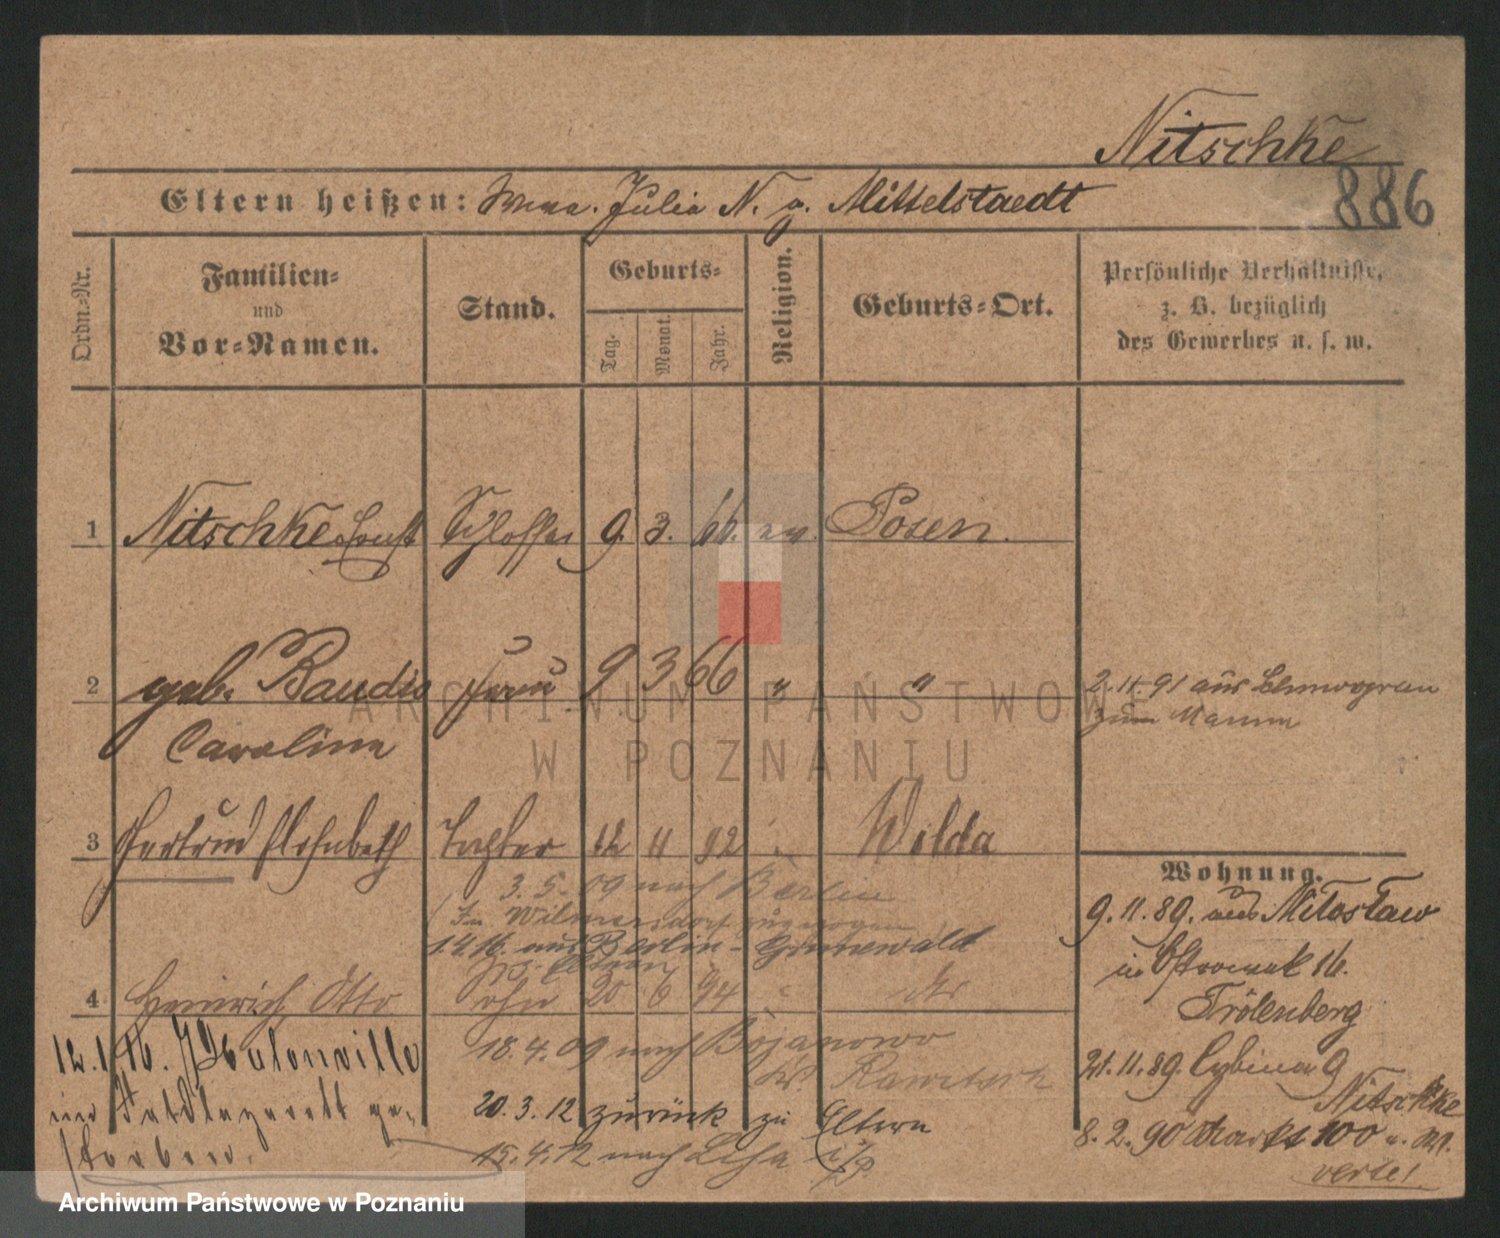 Nitschke
886
Eltern heißen: Julia N. g. Mittelstaedt
Ordn.-Nr.
Familien-
und
Vor-Namen.
Stand.
Geburts-
Tag.
Monat.
Jahr.
Religion.
Geburts-Ort.
Persönliche Verhältnisse,
z. B. bezüglich
des Gewerbes u. s. w.
1 Nitschke Ernst Schlosser 9. 3. 66. ev. Posen.
2 geb. Baudis Frau 9 3 66 " "
Caroline
2. 11. 91 aus
zum Manne
3 Gertrud Elisabeth Tochter 12 11 92 " Wilda
3. 5. 09 nach Berlin
In Wilmersdorf zugezogen
1.4.16. aus Berlin-Grunewald
zu Eltern
4 Heinrich Otto Sohn 20 6 94 "
18. 4. 09 nach Bojanowo
Kr. Rawitsch
20. 3. 12 zurück zu Eltern
15. 4. 12 nach Lissa i/P.
12. 1. 16.
im Feldlazarett ge-
storben.
Wohnung.
9. 11. 89. aus Miloslaw
in Ostrowek 16.
Trölenberg
21. 11. 89. Cybina 9
Nitschke
8. 2. 90 Markt 100
verte!
ARCHIWUM PAŃSTWOWE
W POZNANIU
Archiwum Państwowe w Poznaniu